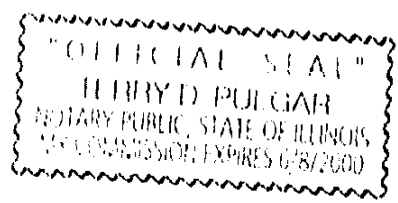 "OFFICIAL SEAL"
TERRY D. PULGAR
NOTARY PUBLIC, STATE OF ILLINOIS
MY COMMISSION EXPIRES 6/8/2000